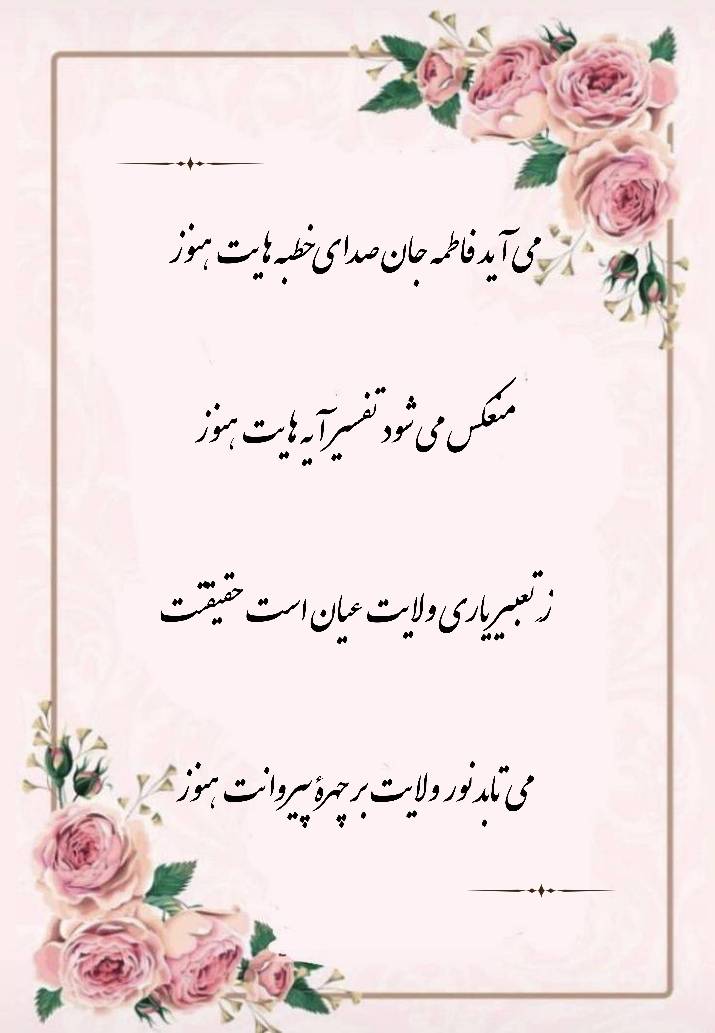 می آید فاطمه جان صدای خطبه هایت هنوز
منعکس می شود تفسیر آیه هایت هنوز
ز تعبیر یاری ولایت عیان است حقیقتت
می تابد نور ولایت بر چهرهٔ پیروانت هنوز